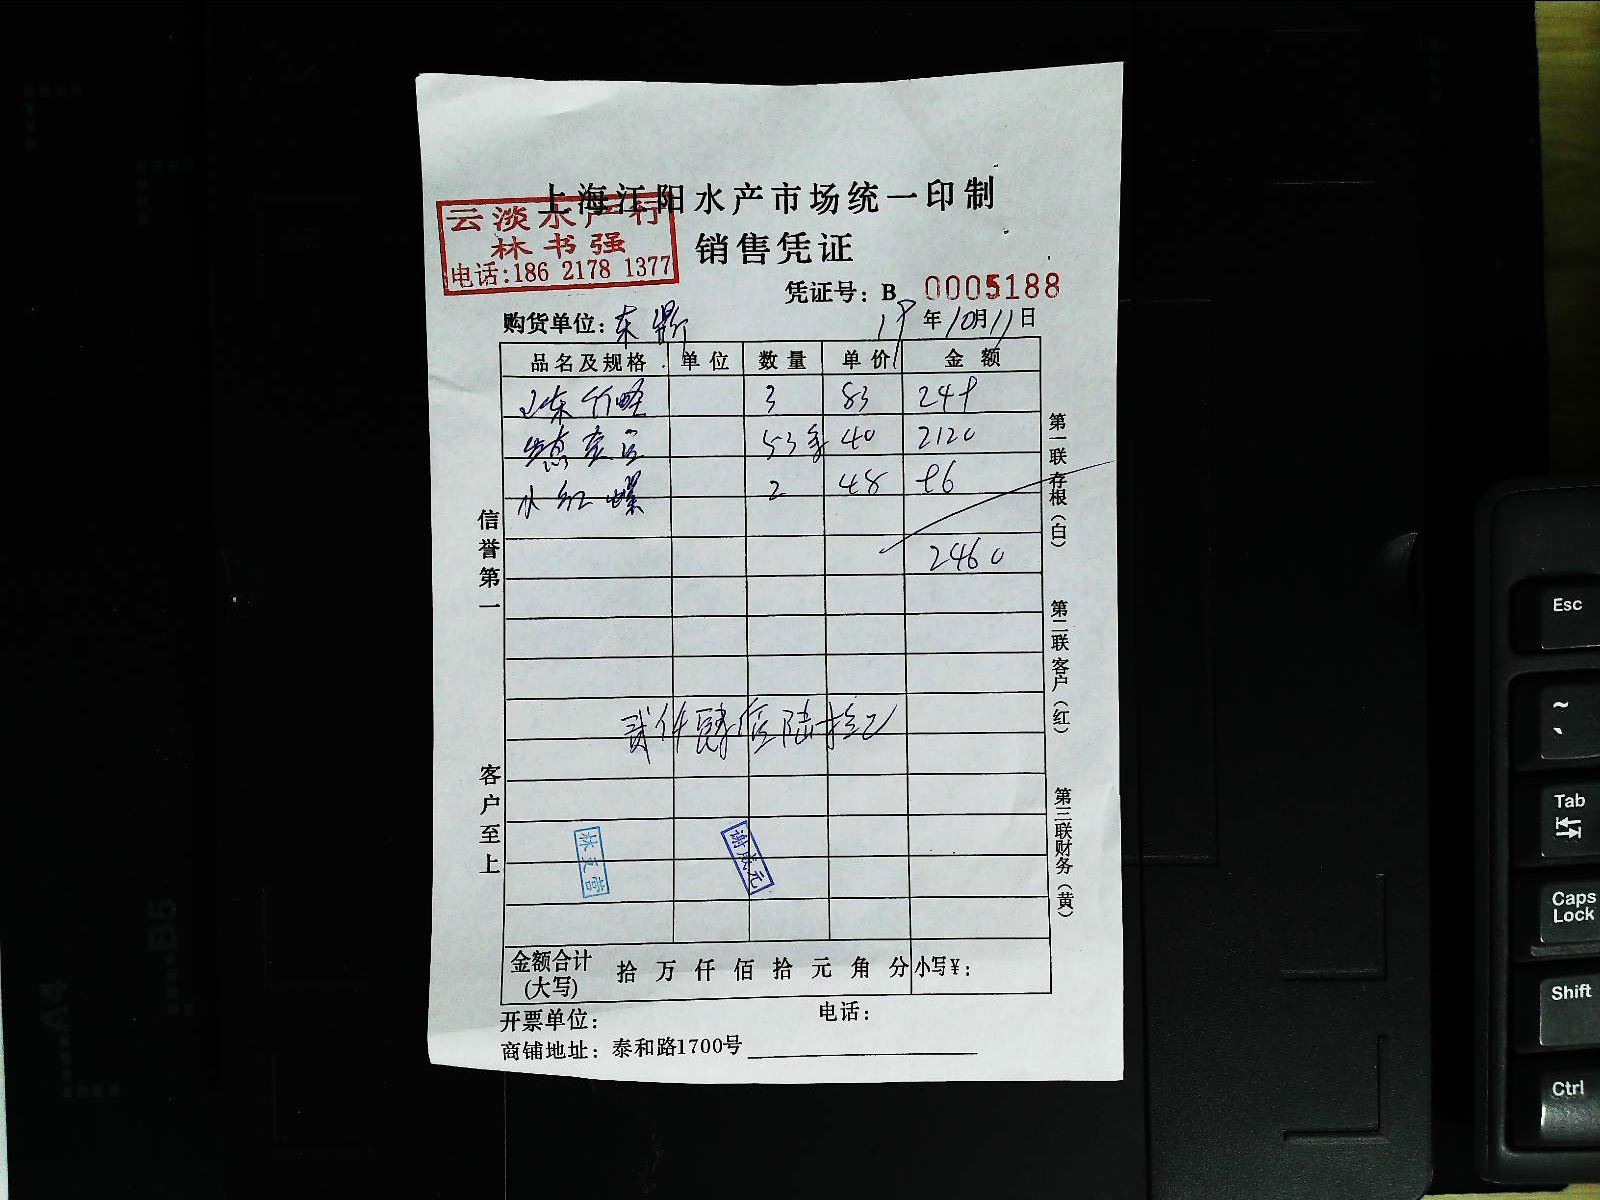 上海江阳水产市场统一印制
云淡水产行
林书强
电话:186 2178 1377
销售凭证
凭证号：B 0005188
购货单位：东 19年10月11日
品名及规格 单位 数量 单价 金额
冻竹蛏 3 83 249
53 40 2120
小红螺 2 48 96
2460
贰仟肆佰陆拾元
林 营
谢 元
金额合计(大写) 拾 万 仟 佰 拾 元 角 分 小写¥：
开票单位： 电话：
商铺地址：泰和路1700号
信誉第一
客户至上
第一联存根（白）
第二联客户（红）
第三联财务（黄）
A4
B5
Esc
~
`
Tab
Caps
Lock
Shift
Ctrl